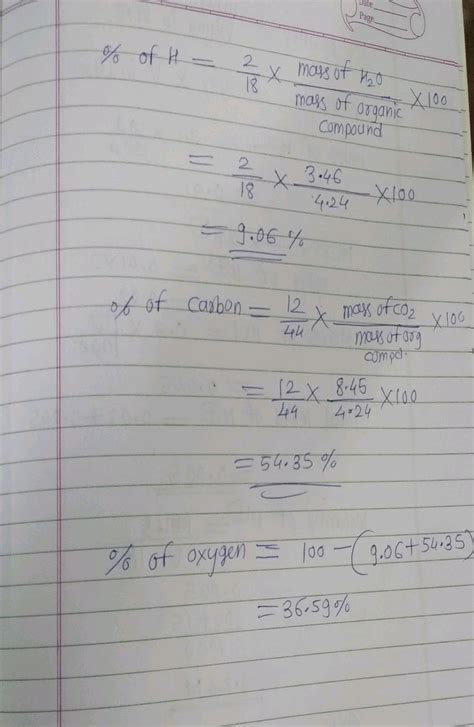 Date
Page
% of H = 2/18 × mass of H₂O / mass of organic compound × 100
= 2/18 × 3.46/4.24 × 100
= 9.06 %
% of Carbon = 12/44 × mass of CO₂ / mass of org compd. × 100
= 12/44 × 8.45/4.24 × 100
= 54.35 %
% of oxygen = 100 − (9.06 + 54.35
= 36.59%